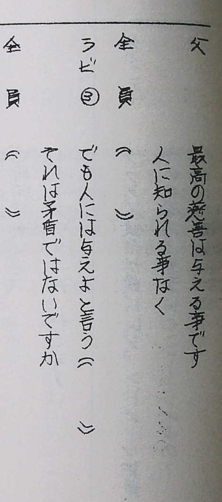 父　最高の慈善は与える事です
人に知られる事なく
全員　《　》
ラビ③　でも人には与えよと言う《　》
それは矛盾ではないですか
全員　《　》